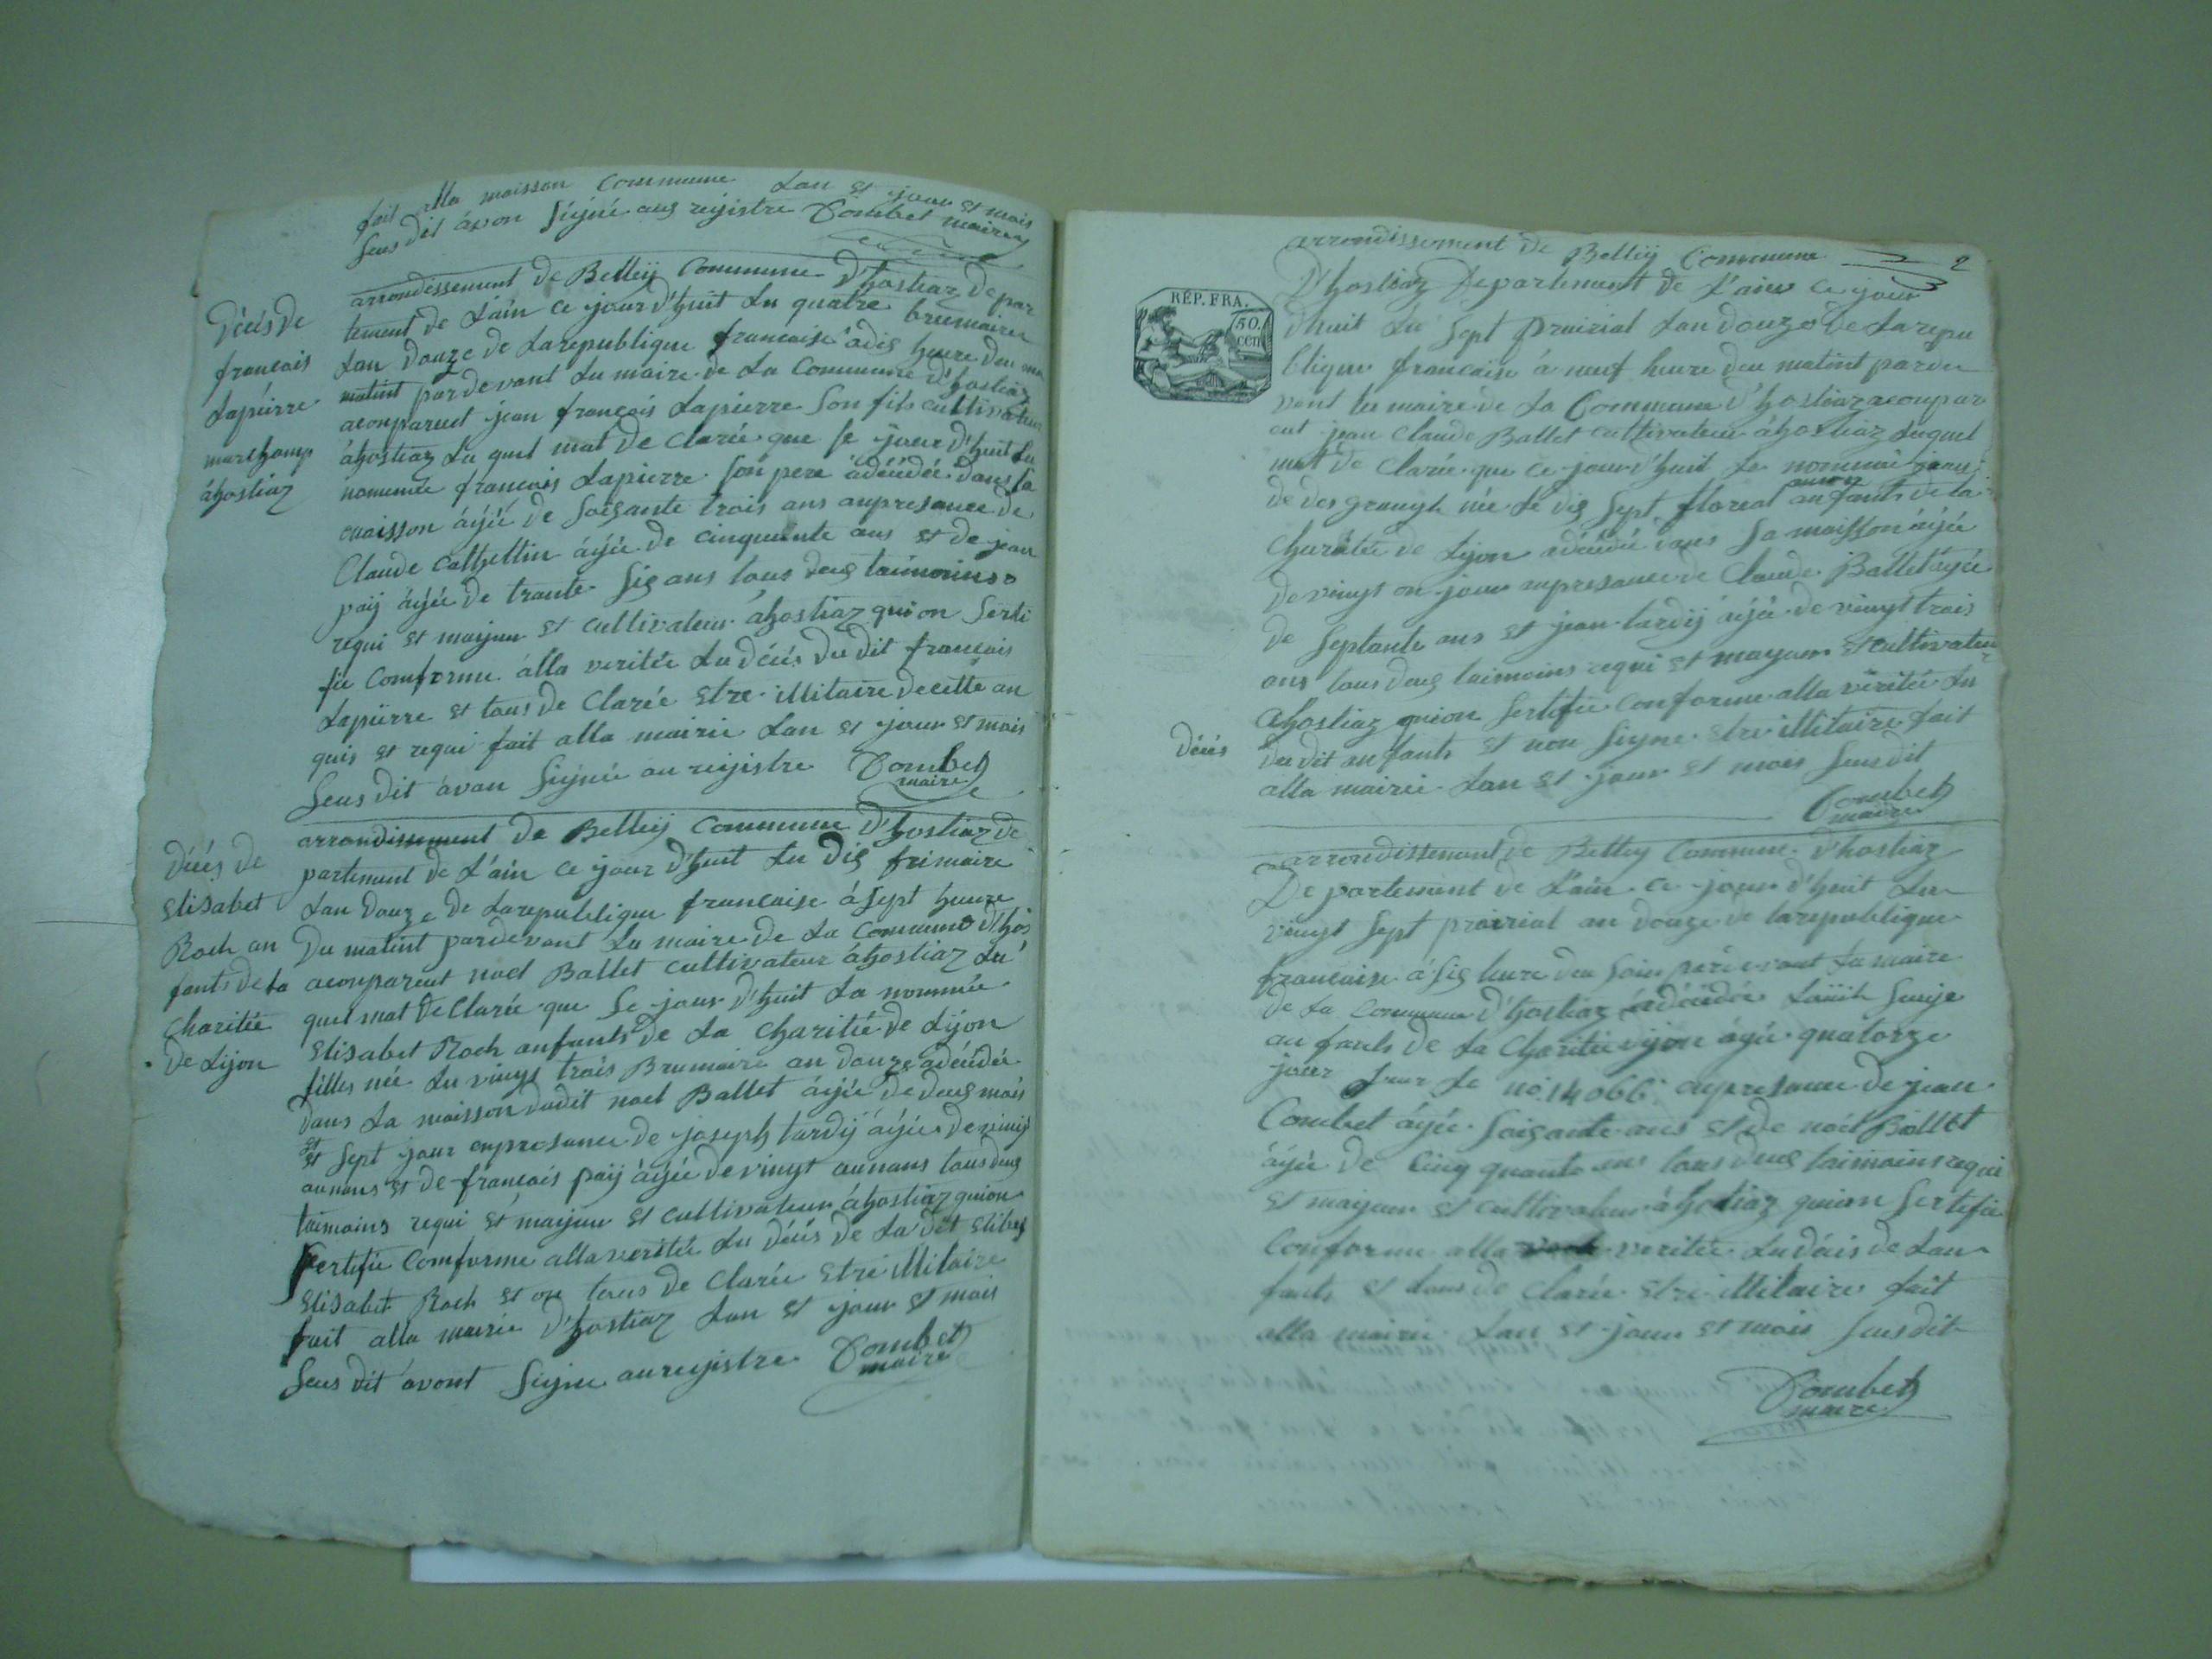 fait alla maisson Commune Lan et jour et mois
Sus dit àvon Signié aux registre Combet maire
Décés de
francois
Lapierre
marchamp
àhostiaz
arrondissement de Belleÿ Commune D'hostiaz Depar
tement de L'ain ce jour d'huit Lu quatre brumaire
Lan Douze de Larepublique francaise adis heure du
matint pardevant Lu maire de La Commune d'hostiaz
aconparuet jean françois Lapierre Son fils cultivateur
àhostiaz Lu quel mat De Clarée que se jour d'huit Lu
nommée francois Lapierre Son pere àdécédée dans sa
maisson àgée de Soisante trois ans anpresance de
Claude Cathellin àgée de cinquante ans et de jean
paÿ àgée de trante Sis ans tous deus taimoins
requi et majeur et cultivateur àhostiaz qui on Serti
fie Comforme àlla veritée Lu Décés Du dit francois
Lapierre et tous de Clarée etre illitaire de cette an
quis et requi fait alla mairie Lan et jour et mois
Sus dit àvan Signée au registre Combet
maire
Décés de
Elisabet
Roch an
fants de La
Charitée
De Lÿon
arrondissement De Belleÿ Commune D'hostiaz de
partement de L'ain ce jour d'huit Lu Dis frimaire
Lan Douze de Larepublique francaise à Sept heure
Du matint pardevant Lu maire de La Commune d'hos
aconparuet noel Ballet cultivateur àhostiaz Lu
quel mat De Clarée que Se jour d'huit La nommée
Elisabet Roch anfants de La Charitée de Lÿon
filles née Lu vingt trois Brumaire an douze adécédée
dans La maisson dudit noel Ballet àgée de deus mois
et Sept jour anpresance de joseph tardÿ àgée de vingt
aunans et de francois paÿ àgée de vingt aunans tous deus
taimoins requi et majeur et cultivateur àhostiaz quion
Sertifie Comforme alla veritée Lu Décés De La dit
Elisabet Roch et on tous de Clarée etre illitaire
fait alla mairie D'hostiaz Lan et jour et mois
Sus dit àvont Signe au registre Combet
maire
2
RÉP. FRA.
50.
cen.
arrondissement de Belleÿ Commune
D'hostiaz Departement de L'ain ce jour
d'huit Lu Sept prairial Lan Douze de Larepu
blique francaise à neuf heure du matint parde
vant Lu maire de La Commune D'hostiaz aconpar
eut jean Claude Ballet cultivateur àhostiaz Luquel
mat De Clarée que ce jour d'huit Le nommée
née Le dis Sept floreal anfants de La
Charitée de Lÿon adécédée dans Sa maisson àgée
De vingt on jour anpresance de Claude Ballet àgée
De Septante ans et jean tardÿ àgée de vingt trois
ans tous deus taimoins requi et majeur et cultivateur
àhostiaz quion Sertifie Conforme alla veritée Lu
Décés
Du dit anfants et non Signe etre illitaire fait
alla mairie Lan et jour et mois Sus dit
Combet
maire
arrondissement de Belleÿ Commune D'hostiaz
Departement de L'ain ce jour d'huit Lu
vingt Sept prairial an douze de larepublique
francaise à Sis heure du Soir pardevant Lu maire
de La Commune D'hostiaz adécédée
anfants de La Charitée àgée quatorze
jour Sur Le no 14066 anpresance de jean
Combet àgée Soisante ans et de noël Ballet
àgée de Cinquante ans tous deus taimoins requi
et majeur et cultivateur àhostiaz quion Sertifie
Conforme alla veritée Lu décés de Lan
fants et tous de Clarée etre illitaire fait
alla mairie Lan et jour et mois Sus dit
Combet
maire